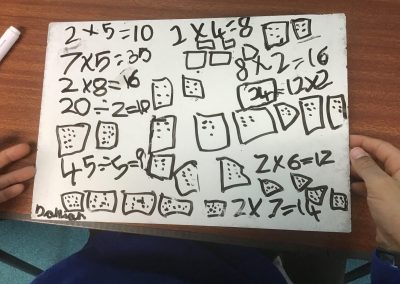 2×5=10
2×4=8
7×5=35
8×2=16
2×8=16
24=12×2
20÷2=10
45÷5=9
2×6=12
2×7=14
Damian